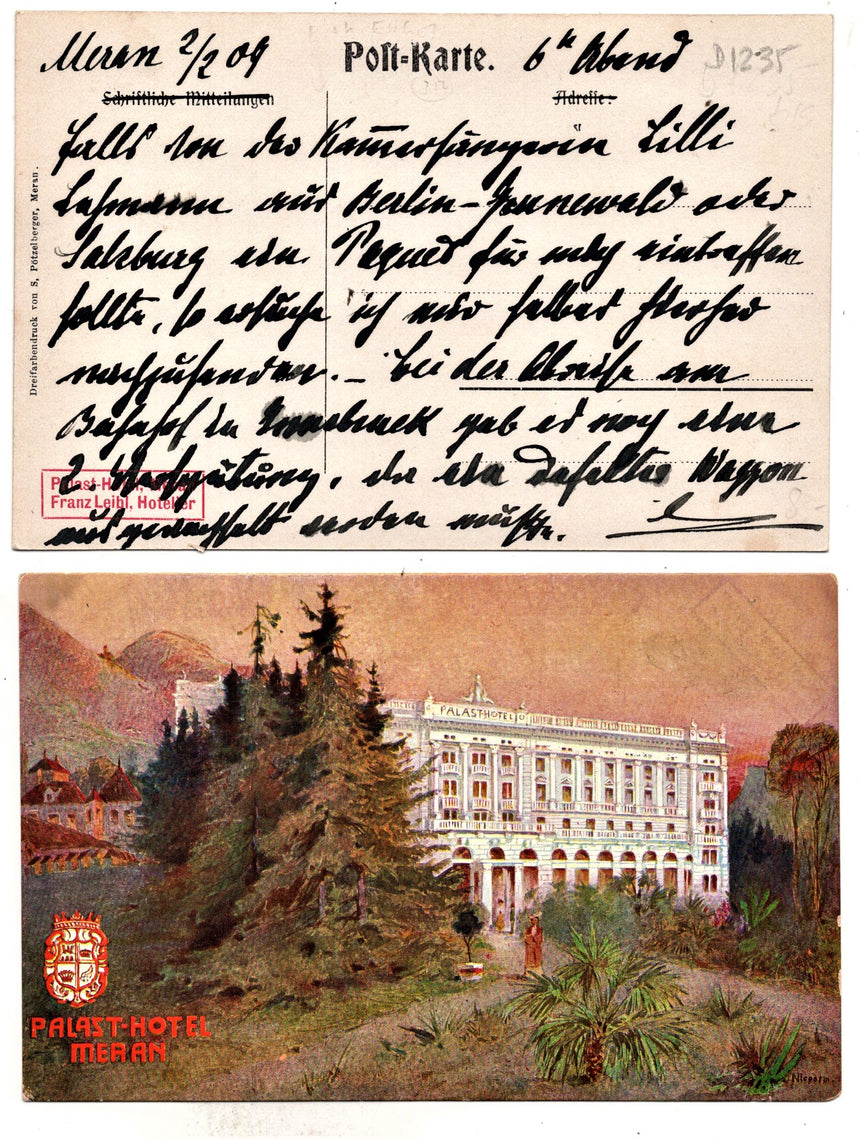 Meran 2/2 09 Post-Karte. 6h Abend D1235-
Schriftliche Mitteilungen Adresse:
falls von der Kammersängerin Lilli
Lehmann aus Berlin-Grunewald oder
Salzburg ein Paquet für mich eintreffen
sollte, so ersuche ich mir selbes hierher
nachzusenden. – bei der Abreise am
Bahnhof in Innsbruck gab es noch eine
2. , da ein defekter Waggon
ausgewechselt werden mußte.
Dreifarbendruck von S. Pötzelberger, Meran.
Palast-Hotel, Meran
Franz Leibl, Hotelier
8-
PALAST-HOTEL
PALAST-HOTEL
MERAN